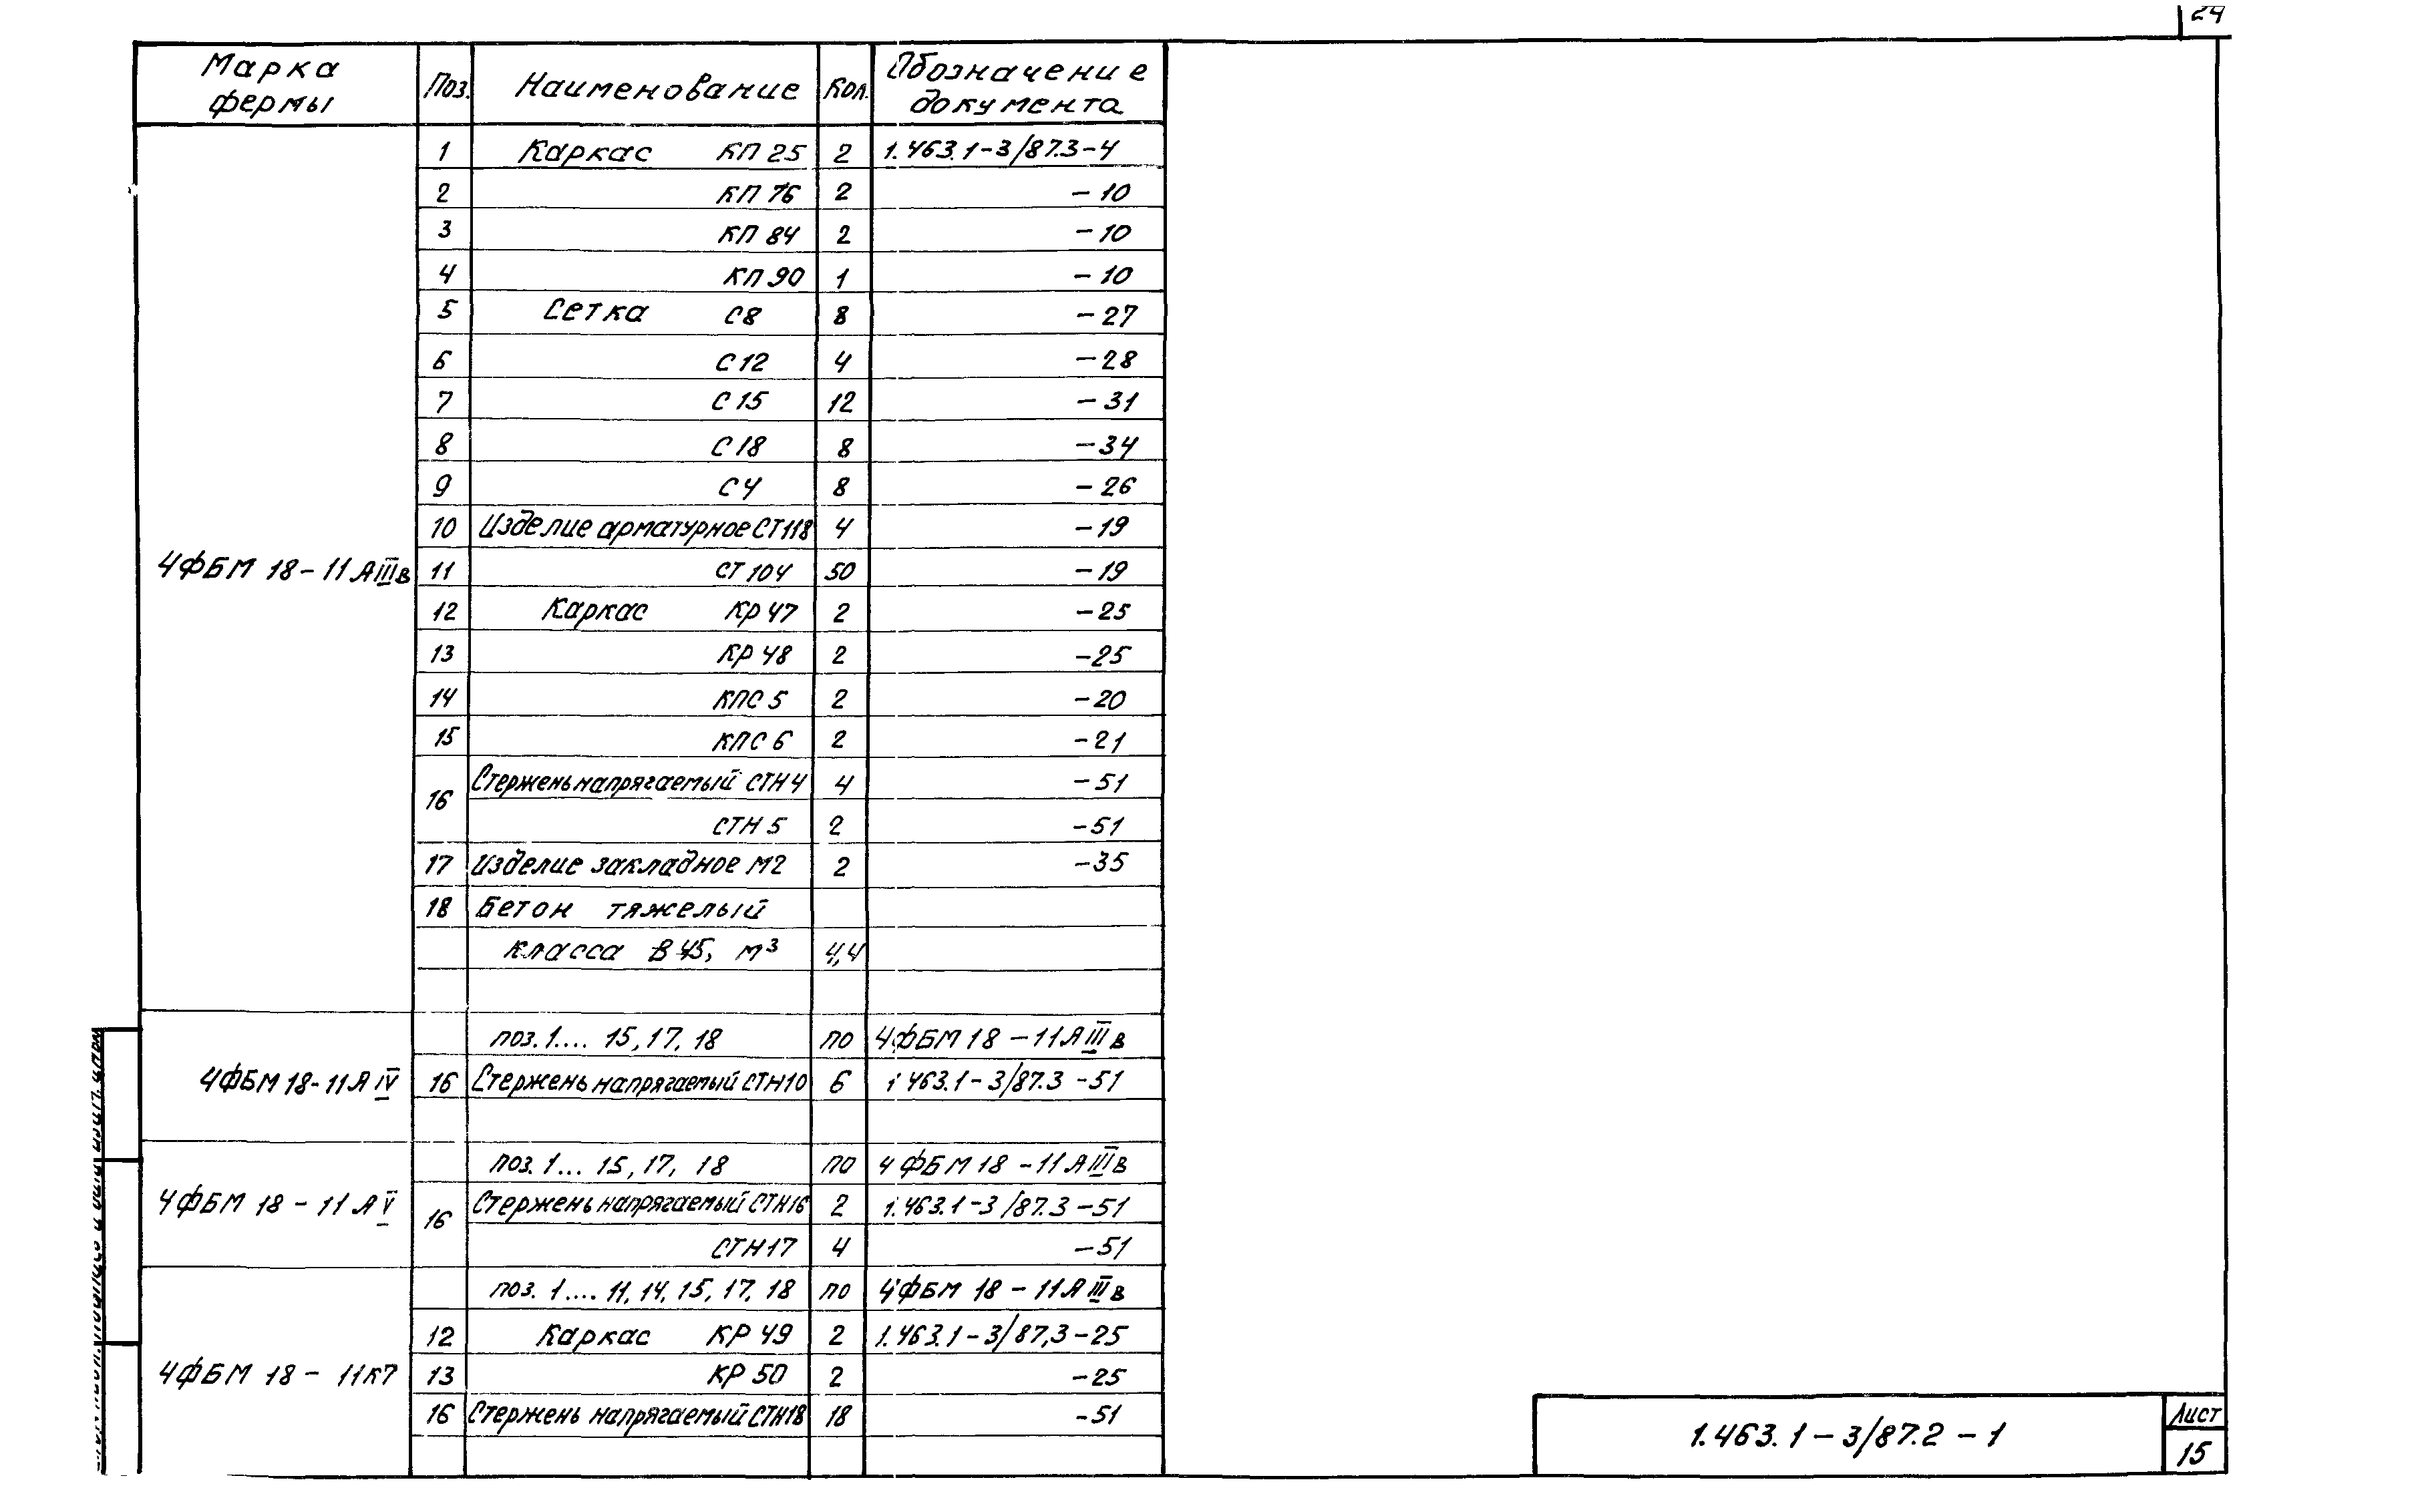 24
Марка фермы Поз. Наименование Кол. Обозначение документа
4ФБМ 18-11АIIIв
1 Каркас КП 25 2 1.463.1-3/87.3-4
2 КП 76 2 -10
3 КП 84 2 -10
4 КП 90 1 -10
5 Сетка С8 8 -27
6 С12 4 -28
7 С15 12 -31
8 С18 8 -34
9 С4 8 -26
10 Изделие арматурное СТ118 4 -19
11 СТ104 50 -19
12 Каркас КР47 2 -25
13 КР48 2 -25
14 КПС 5 2 -20
15 КПС 6 2 -21
16 Стержень напрягаемый СТН4 4 -51
СТН 5 2 -51
17 Изделие закладное М2 2 -35
18 Бетон тяжелый
класса В45, м³ 4,4
4ФБМ 18-11АIV
поз. 1.... 15, 17, 18 по 4ФБМ 18-11АIIIв
16 Стержень напрягаемый СТН10 6 1.463.1-3/87.3-51
4ФБМ 18-11АV
поз. 1... 15, 17, 18 по 4ФБМ 18-11АIIIв
16 Стержень напрягаемый СТН16 2 1.463.1-3/87.3-51
СТН17 4 -51
4ФБМ 18-11К7
поз. 1.... 11, 14, 15, 17, 18 по 4ФБМ 18-11АIIIв
12 Каркас КР 49 2 1.463.1-3/87,3-25
13 КР 50 2 -25
16 Стержень напрягаемый СТН18 18 -51
1.463.1-3/87.2-1
Лист
15